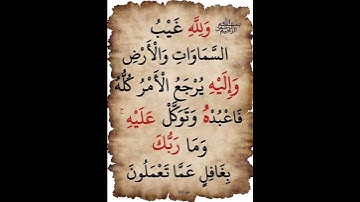 وَلِلَّهِ غَيْبُ
السَّمَاوَاتِ وَالْأَرْضِ
وَإِلَيْهِ يُرْجَعُ الْأَمْرُ كُلُّهُ
فَاعْبُدْهُ وَتَوَكَّلْ عَلَيْهِ ۚ
وَمَا رَبُّكَ
بِغَافِلٍ عَمَّا تَعْمَلُونَ